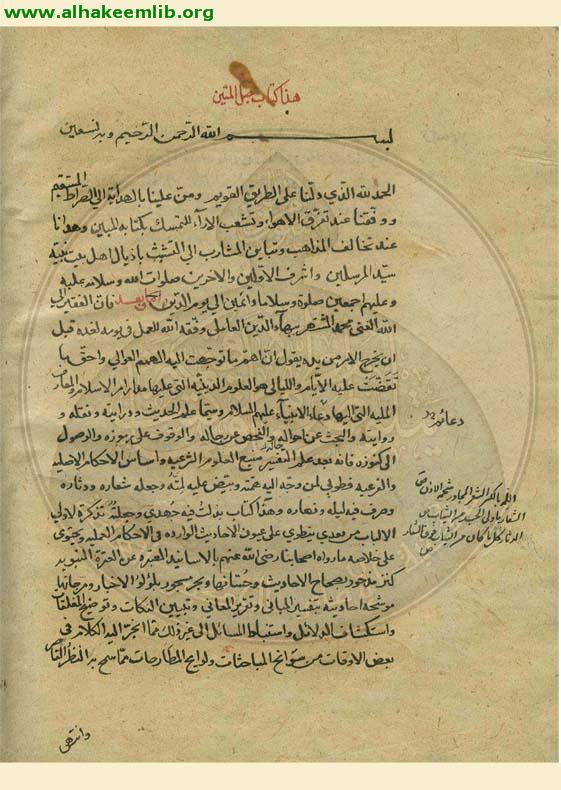 www.alhakeemlib.org
هذا كتاب حبل المتين
بسم الله الرحمن الرحيم وبه نستعين
الحمد لله الذي دلنا على الطريق القويم ومن علينا بالهداية إلى الصراط المستقيم
ووفقنا عند تفرق الاهواء وتشعب الاراء للتمسك بكتابه المبين وهدانا
عند تخالف المذاهب وتباين المشارب الى التشبث باذيال اهل بيت نبيه
سيد المرسلين واشرف الاولين والاخرين صلوات الله وسلامه عليه
وعليهم اجمعين صلوة وسلاما دائمين الى يوم الدين اما بعد فان الفقير الى
الله الغني محمد المشتهر ببهاء الدين العاملي وفقه الله للعمل في يومه لغده قبل
ان يخرج الامر من يده يقول ان اهم ما توجهت اليه الهمم العوالي واحق ما
تقضت عليه الايام والليالي هو العلوم الدينية التي عليها مدار الاسلام والمعارف
الملية التي اليها دعاء الانبياء عليهم السلام وسيما علم الحديث ودرايته ونقله و
روايته والبحث عن احواله والفحص عن رجاله والوقوف على رموزه والوصول
الى كنوزه فانه بعد علم التفسير منبع العلوم الشرعيه واساس الاحكام الاصليه
والفرعيه فطوبى لمن وجه اليه همته وبيض عليه لمته وجعله شعاره ودثاره
وصرف فيه ليله ونهاره وهذا كتاب بذلت فيه جهدي وجعلته تذكرة لاولي
الالباب من بعدي ينطوي على عيون الاحاديث الواردة في الاحكام العمليه ويحتوي
على خلاصه ما رواه اصحابنا رضي الله عنهم بالاسانيد المعتبره عن العترة النبويه
كنز مذخور بصحاح الاحاديث وحسانها وبحر مسجور بلؤلؤ الاخبار ومرجانها
موشحة احاديثه بتفسير المباني وتقرير المعاني وتبيين النكات وتوضيح المغلقات
واستكشاف الدلائل واستنباط المسائل الى غير ذلك مما انجر اليه الكلام في
بعض الاوقات من سوانح المباحثات ولوايح المطارحات مما سمح به النظر القاصر
دعائم
وانتهى